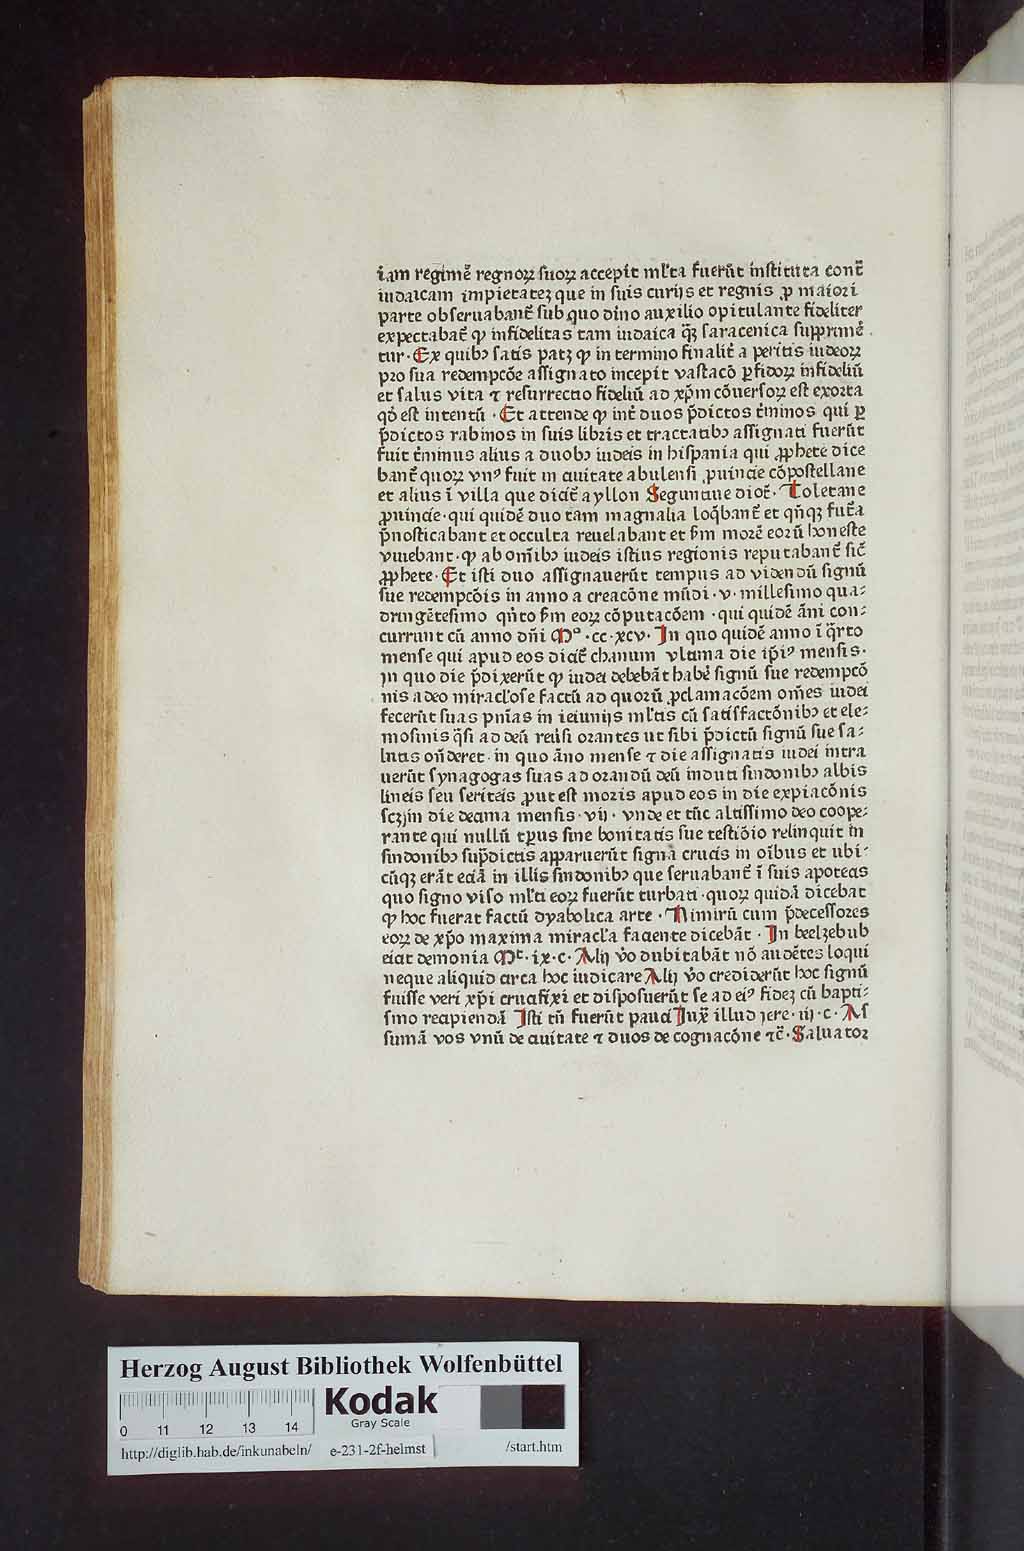 iam regimē regnoꝝ suoꝝ accepit ml'ta fuerūt instituta contᷓ
iudaicam impietateꝫ que in suis curijs et regnis ꝓ maiori
parte obseruabant᷑ sub quo dīno auxilio opitulante fideliter
expectabāt᷑ ꝙ infidelitas tam iudaica q̄ꝫ saracenica supprimē
tur · Ex quibꝰ satis patꝫ ꝙ in termino finalit᷑ a peritis iudeoꝝ
pro sua redempcōe assignato incepit vastacō ꝑfidoꝝ infideliū
et salus vita ⁊ resurrectio fideliū ad xp̄m cōuersoꝝ est exorta
qd̄ est intentū · Et attende ꝙ int᷑ duos p̄dictos t᷑minos qui ꝑ
p̄dictos rabinos in suis libris et tractatibꝰ assignati fuerūt
fuit t᷑minus alius a duobꝰ iudeis in hispania qui ꝓphete dice
bant᷑ quoꝝ vnꝰ fuit in ciuitate abulensi ꝓuincie cōpostellane
et alius ī villa que dicit᷑ ayllon Seguntine dioc̄ · Toletane
ꝓuincie · qui quidē duo tam magnalia loq̄bant᷑ et qn̄qꝫ fut᷑a
p̄nosticabant et occulta reuelabant et s̄m morē eorū honeste
viuebant · ꝙ ab om̄ibꝰ iudeis istius regionis reputabant᷑ sic᷑
ꝓphete · Et isti duo assignauerūt tempus ad videndū signū
sue redempcōis in anno a creacōne mūdi · v · millesimo qua⸗
dringētesimo qn̄to s̄m eoꝝ cōputacōem · qui quidē āni con⸗
currunt cū anno dn̄i Mᵒ · cc · xcv · In quo quidē anno ī q̄rto
mense qui apud eos dicit᷑ chanum vltima die ip̄iꝰ mensis ·
in quo die p̄dixerūt ꝙ iudei debebāt habē signū sue redempcō
nis adeo miracl'ose factū ad quorū ꝓclamacōem om̄es iudei
fecerūt suas pn̄ias in ieiunijs ml'tis cū satisfactōnibꝰ et ele⸗
mosinis q̄si ad deū reu᷑si orantes ut sibi p̄dictū signū sue sa⸗
lutis on̄deret · in quo āno mense ⁊ die assignatis iudei intra
uerūt synagogas suas ad orandū deū induti sindonibꝰ albis
lineis seu sericeis ꝓut est moris apud eos in die expiacōnis
scꝫ in die decima mensis · vij · vnde et tūc altissimo deo coope⸗
rante qui nullū tp̄us sine bonitatis sue testiōio relinquit in
sindonibꝰ sup̄dictis apparuerūt signa crucis in oībus et ubi⸗
cūqꝫ erāt eciā in illis sindonibꝰ que seruabant᷑ ī suis apotecis
quo signo viso ml'ti eoꝝ fuerūt turbati · quoꝝ quidā dicebāt
ꝙ hoc fuerat factū dyabolica arte · Nimirū cum p̄decessores
eoꝝ de xp̄o maxima miracl'a faciente dicebāt · In beelzebub
eicit demonia Mt̄ · ix · c · Alij v̊o dubitabāt nō audētes loqui
neque aliquid circa hoc iudicare Alij v̊o crediderūt hoc signū
fuisse veri xp̄i crucifixi et disposuerūt se ad eiꝰ fideꝫ cū bapti⸗
smo recipiendā Isti tn̄ fuerūt pauci Juxᷓ illud iere · iij · c · As
sumā vos vnū de ciuitate ⁊ duos de cognacōne ⁊c̄ · Saluator
Herzog August Bibliothek Wolfenbüttel
Kodak
Gray Scale
0 11 12 13 14
http://diglib.hab.de/inkunabeln/ e-231-2f-helmst /start.htm